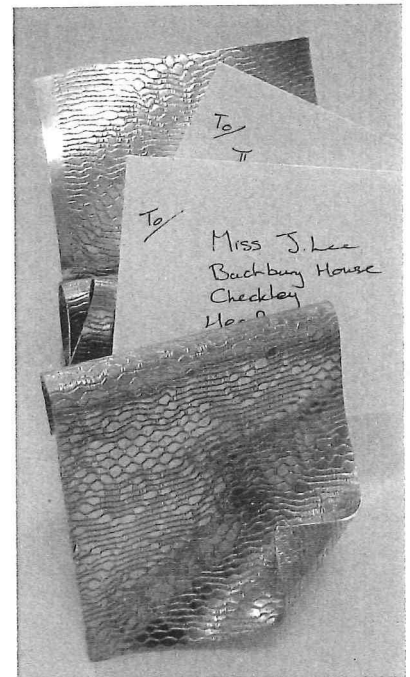 To/
To/
Miss J. Lee
Backbury House
Checkley